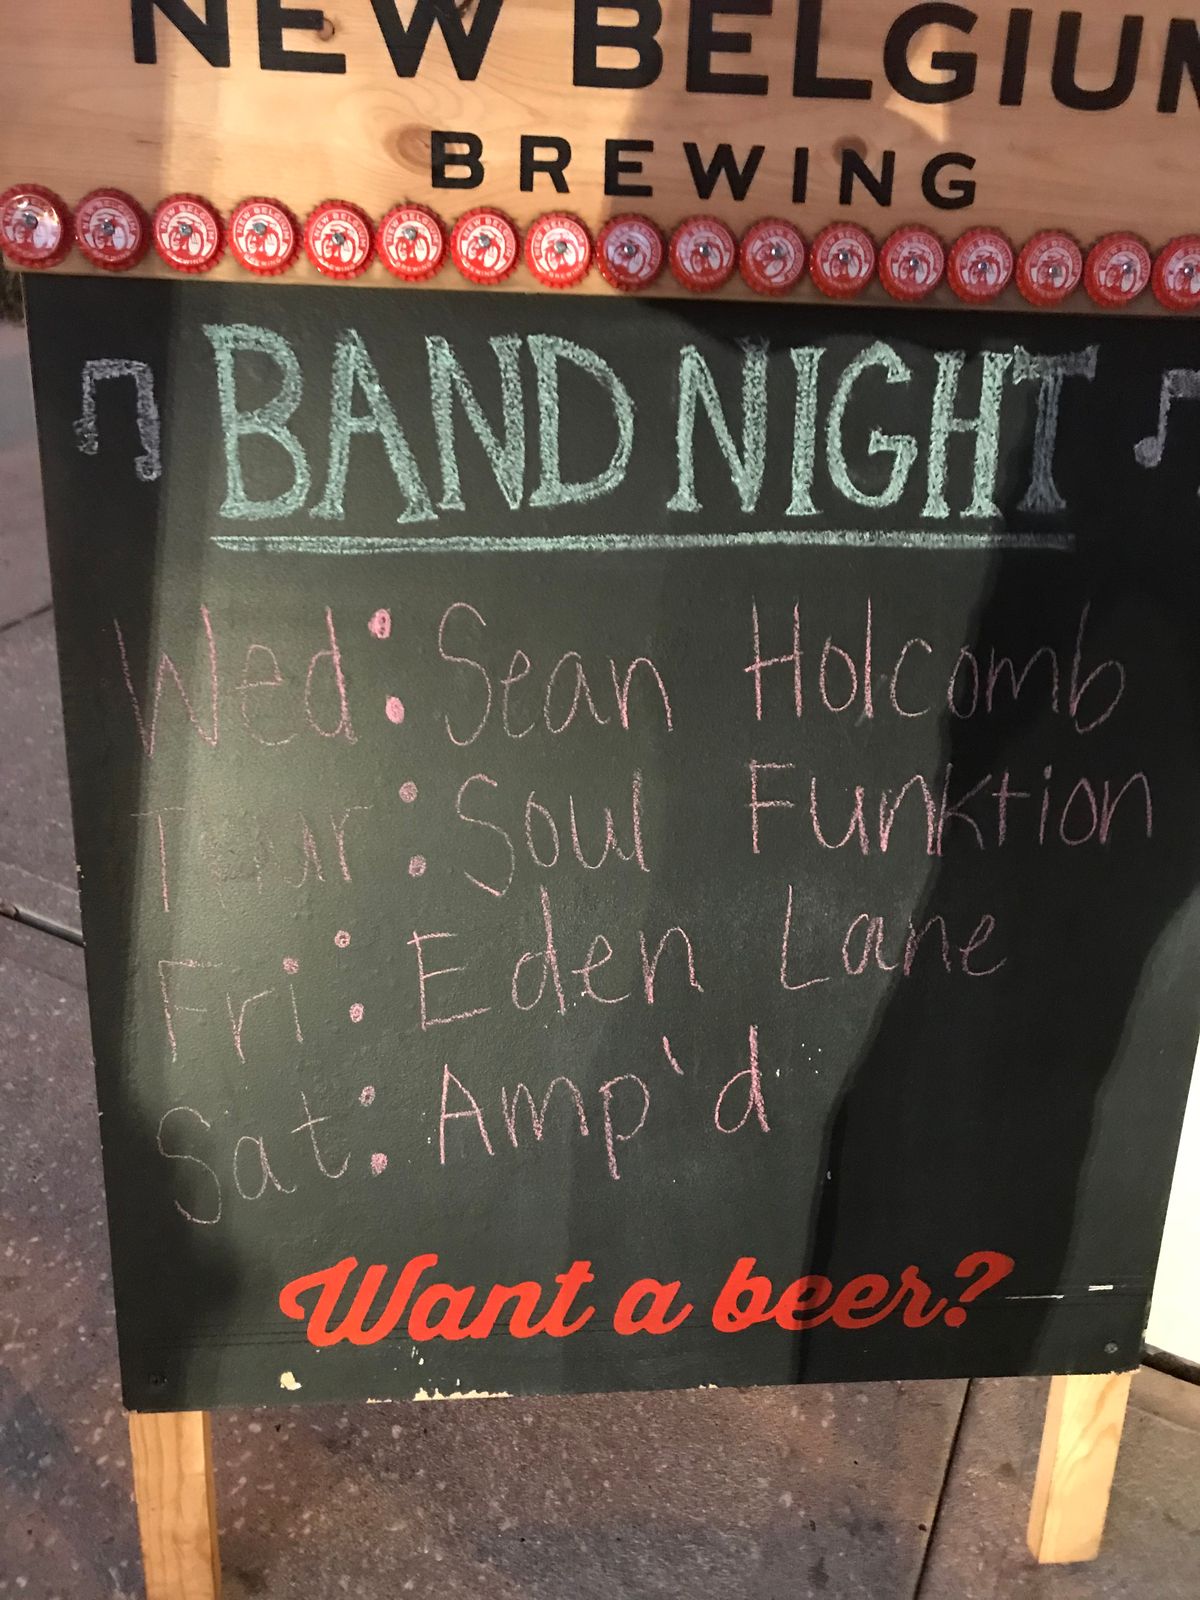 NEW BELGIUM
BREWING
BAND NIGHT
Wed: Sean Holcomb
Thur: Soul Funktion
Fri: Eden Lane
Sat: Amp'd
Want a beer?